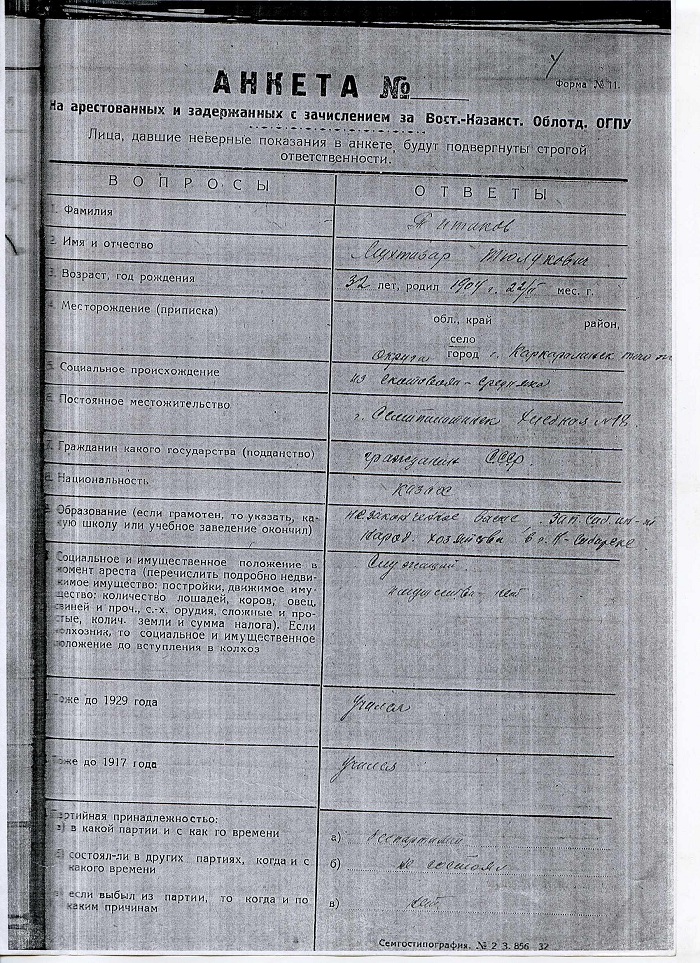 Форма № 11.
АНКЕТА №
На арестованных и задержанных с зачислением за Вост.-Казакст. Облотд. ОГПУ
Лица, давшие неверные показания в анкете, будут подвергнуты строгой
ответственности.
ВОПРОСЫ ОТВЕТЫ
1. Фамилия
2. Имя и отчество Мухтабар Тюлукович
3. Возраст, год рождения 32 лет, родил 1904 г. 22/II мес. г.
4. Месторождение (приписка) обл., край район,
село
округа город г. Каркаралинск того
5. Социальное происхождение из скотовода-средняка
6. Постоянное местожительство г. Семипалатинск №18
7. Гражданин какого государства (подданство) гражданин СССР.
8. Национальность казак
Образование (если грамотен, то указать, ка- незаконченное Зап. Сиб. ин-т
кую школу или учебное заведение окончил) народ. хозяйства в г. Н-Сибирске
Социальное и имущественное положение в Служащий
момент ареста (перечислить подробно недви-
жимое имущество: постройки, движимое иму- имущества - нет
щество: количество лошадей, коров, овец,
свиней и проч., с.-х. орудия, сложные и про-
стые, колич. земли и сумма налога). Если
колхозник, то социальное и имущественное
положение до вступления в колхоз
Тоже до 1929 года учился
Тоже до 1917 года учился
Партийная принадлежность:
а) в какой партии и с как го времени а) беспартийн
б) состоял-ли в других партиях, когда и с б) не состоял
какого времени
в) если выбыл из партии, то когда и по в) нет
каким причинам
Семгостипография. № 2 З. 856 32